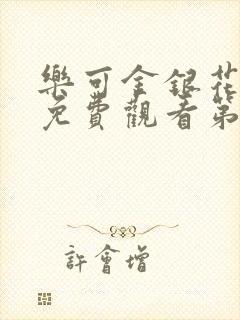 樂可金銀花
免費觀看第
許會增